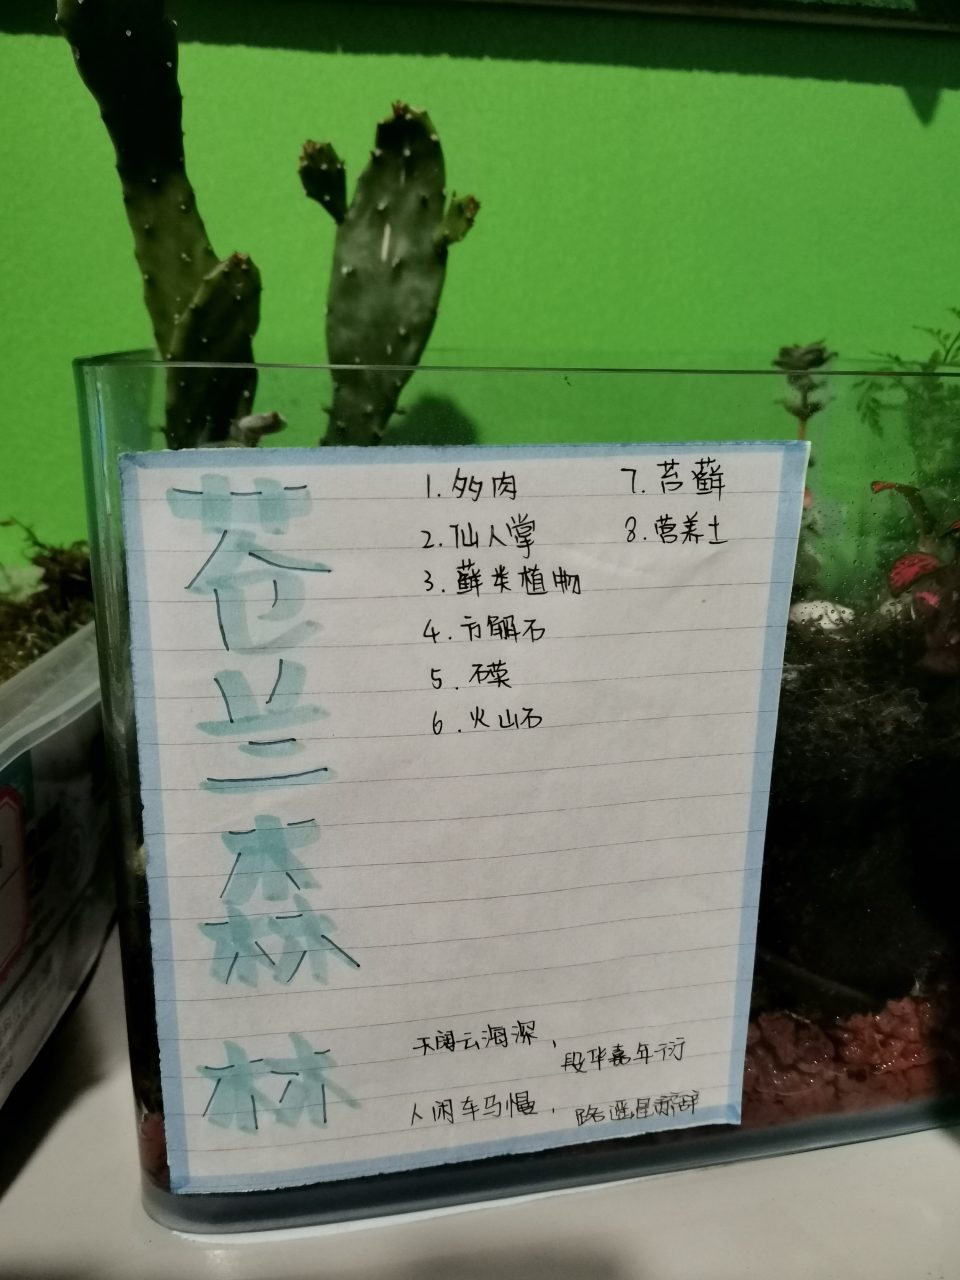 苍兰森林
1.多肉
2.仙人掌
3.藓类植物
4.方解石
5.石英
6.火山石
7.苔藓
8.营养土
天阔云海深，
段华嘉年衍
人闲车马慢，
路遥星亦辞